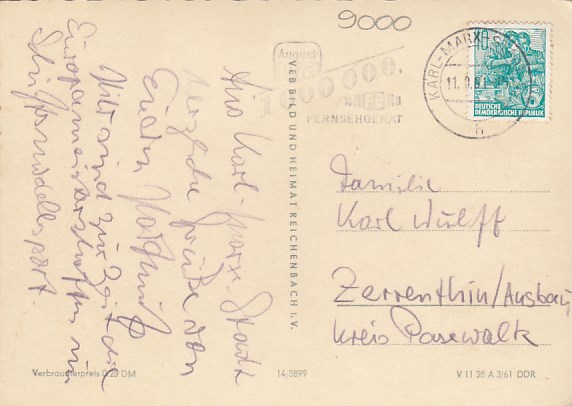 9000
August
1 000 000.
FERNSEHGERÄT
KARL-MARX-ST
11.9.61
h
10
DEUTSCHE
DEMOKRATISCHE REPUBLIK
Aus Karl-Marx-Stadt
herzliche Grüße von
Hier sind zur Zeit die
Europameisterschaften im
Schiffsmodellsport.
VEB BILD UND HEIMAT REICHENBACH i. V.
Familie
Karl Wulff
Zerrenthin/Ausbau
Kreis Pasewalk
Verbraucherpreis 0.25 DM
14/3899
V 11 28 A 3/61 DDR